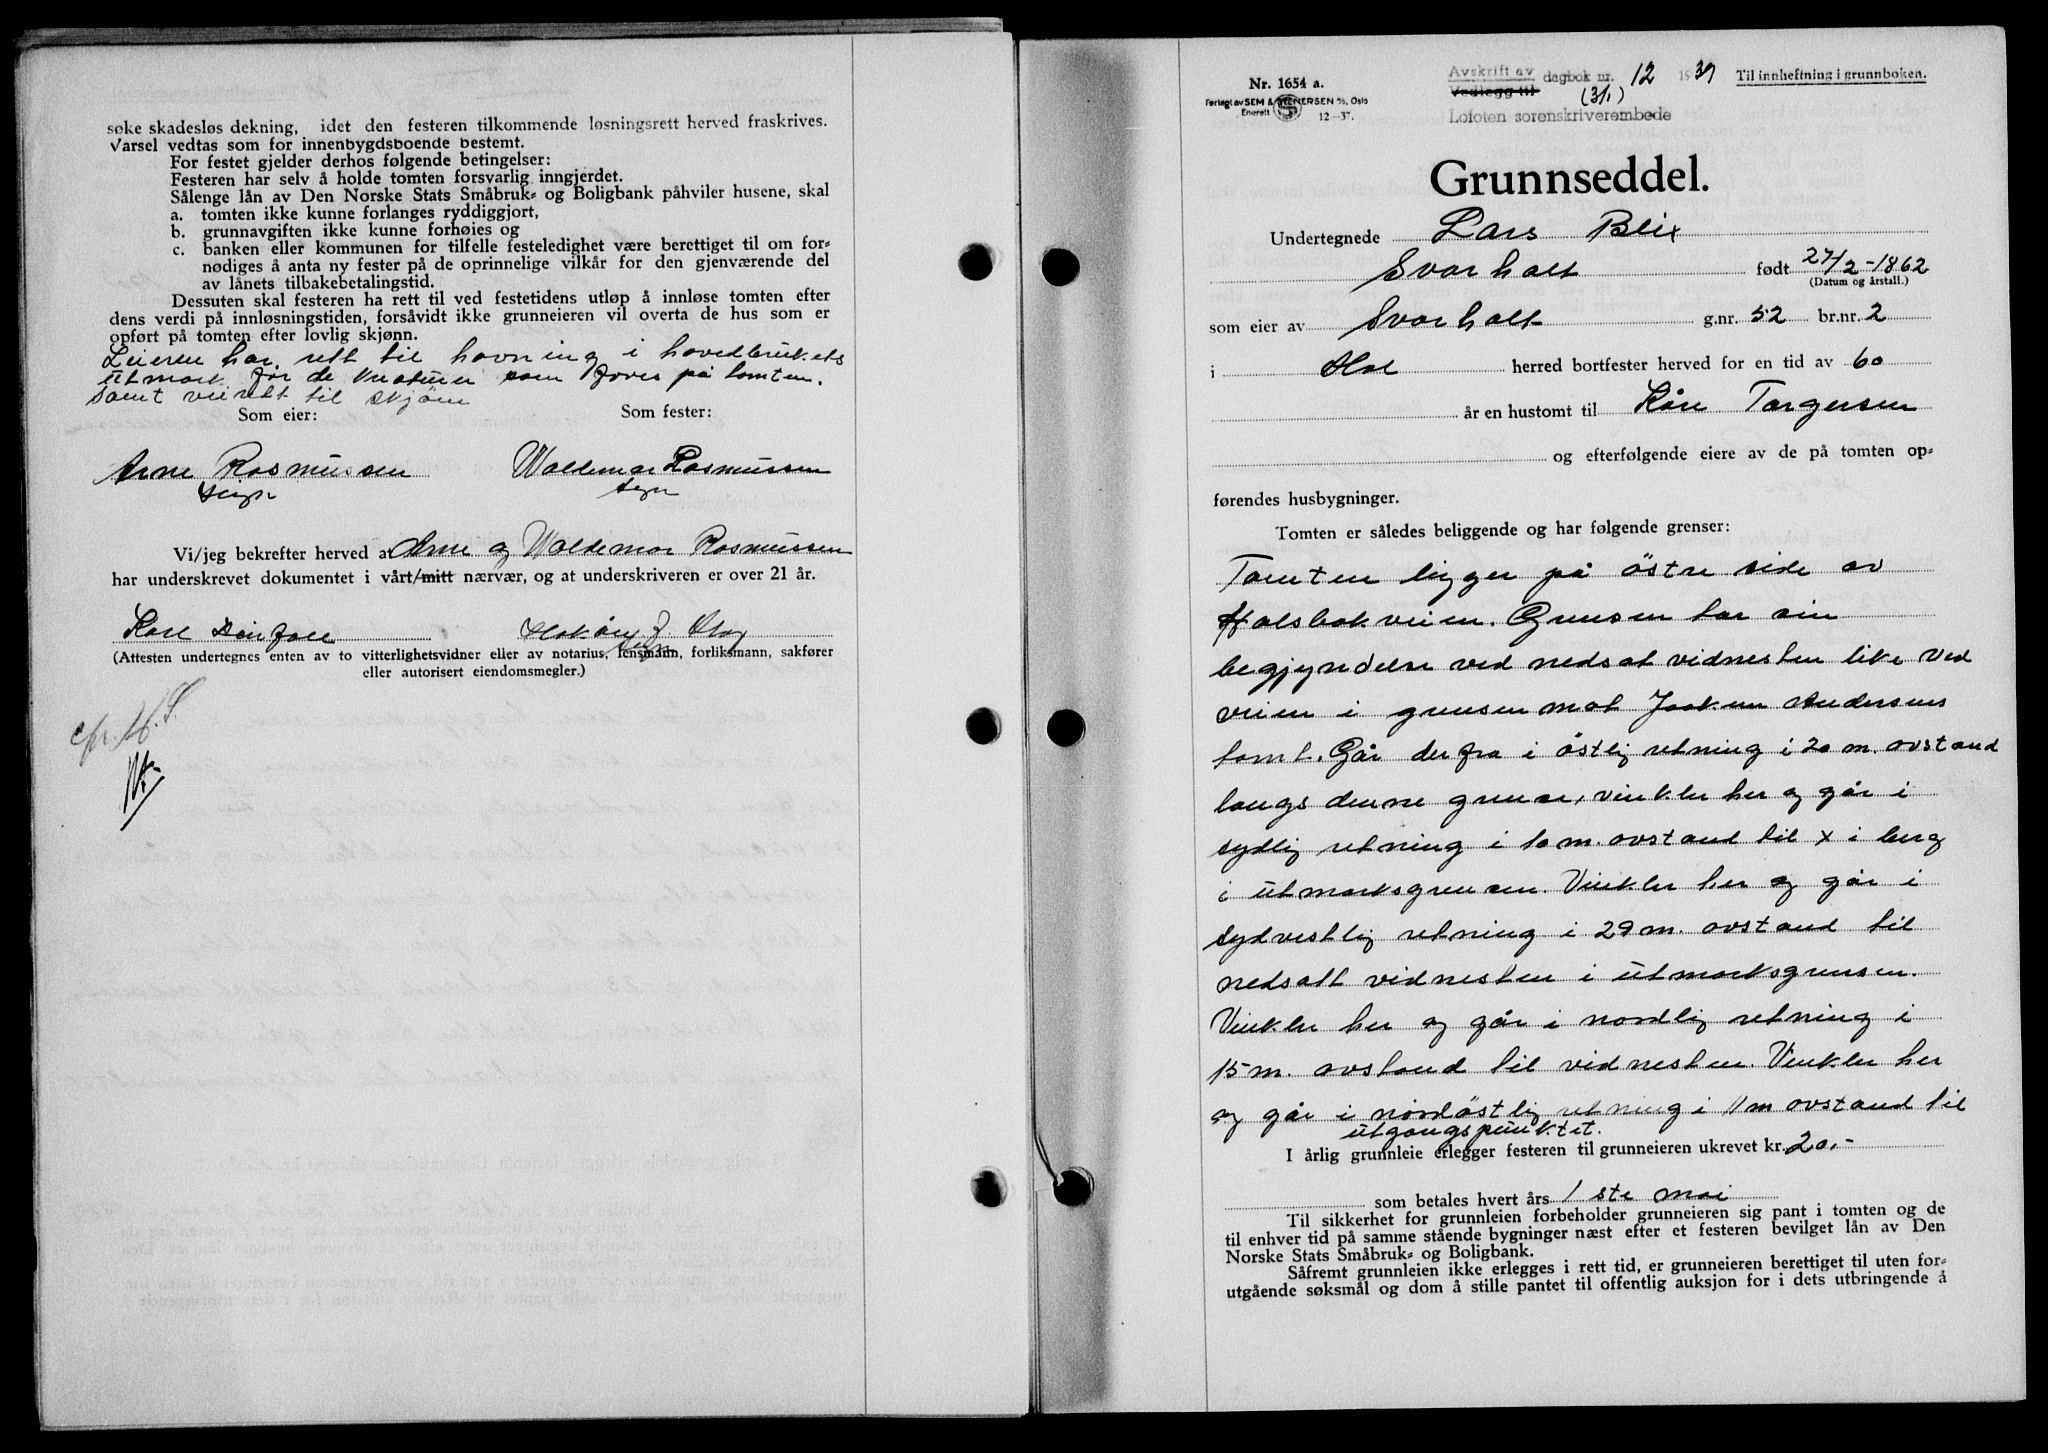 søke skadesløs dekning, idet den festeren tilkommende løsningsrett herved fraskrives.
Varsel vedtas som for innenbygdsboende bestemt.
For festet gjelder derhos følgende betingelser:
Festeren har selv å holde tomten forsvarlig inngjerdet.
Sålenge lån av Den Norske Stats Småbruk- og Boligbank påhviler husene, skal
a. tomten ikke kunne forlanges ryddiggjort,
b. grunnavgiften ikke kunne forhøies og
c. banken eller kommunen for tilfelle festeledighet være berettiget til om for-
nødiges å anta ny fester på de oprinnelige vilkår for den gjenværende del
av lånets tilbakebetalingstid.
Dessuten skal festeren ha rett til ved festetidens utløp å innløse tomten efter
dens verdi på innløsningstiden, forsåvidt ikke grunneieren vil overta de hus som er
opført på tomten efter lovlig skjønn.
Leieren har rett til havning i hovedbrukets
utmark for de kreturer som fores på tomten.
samt veirett til skjøn
Som eier: Som fester:
Arne Rasmussen Waldemar Rasmussen
sign sign
Vi/jeg bekrefter herved at Arne og Waldemar Rasmussen
har underskrevet dokumentet i vårt/mitt nærvær, og at underskriveren er over 21 år.
Kåre Hakon J.
sign
(Attesten undertegnes enten av to vitterlighetsvidner eller av notarius, lensmann, forliksmann, sakfører
eller autorisert eiendomsmegler.)
Nr. 1654 a.
Forlagt av SEM & STENERSEN A/S, Oslo
Enerett S 12-37.
Avskrift av
Vedlegg til dagbok nr. 12 1939 Til innheftning i grunnboken.
(3/1)
Lofoten sorenskriverembede
Grunnseddel.
Undertegnede Lars Blix
Svarholt født 27/2-1862
(Datum og årstall.)
som eier av Svarholt g.nr. 52 br.nr. 2
i Hol herred bortfester herved for en tid av 60
år en hustomt til Kåre Torgersen
og efterfølgende eiere av de på tomten op-
førendes husbygninger.
Tomten er således beliggende og har følgende grenser:
Tomten ligger på østre side av
Halsbakveien. Grensen har sin
begjyndelse ved nedsat vidnesten like ved
veien i grensen mot Joakim Andersens
tomt. Går derfra i østlig retning i 20 m. avstand
langs denne grense, vinkler her og går i
sydlig retning i 10 m. avstand til x i berg
i utmarksgrensen. Vinkler her og går i
sydvestlig retning i 29 m. avstand til
nedsatt vidnesten i utmarksgrensen.
Vinkler her og går i nordlig retning i
15 m. avstand til vidnesten. Vinkler her
og går i nordøstlig retning i 11 m avstand til
utgangspunktet.
I årlig grunnleie erlegger festeren til grunneieren ukrevet kr. 20,-
som betales hvert års 1ste mai
Til sikkerhet for grunnleien forbeholder grunneieren sig pant i tomten og de
til enhver tid på samme stående bygninger næst efter et festeren bevilget lån av Den
Norske Stats Småbruk- og Boligbank.
Såfremt grunnleien ikke erlegges i rett tid, er grunneieren berettiget til uten for-
utgående søksmål og dom å stille pantet til offentlig auksjon for i dets utbringende å